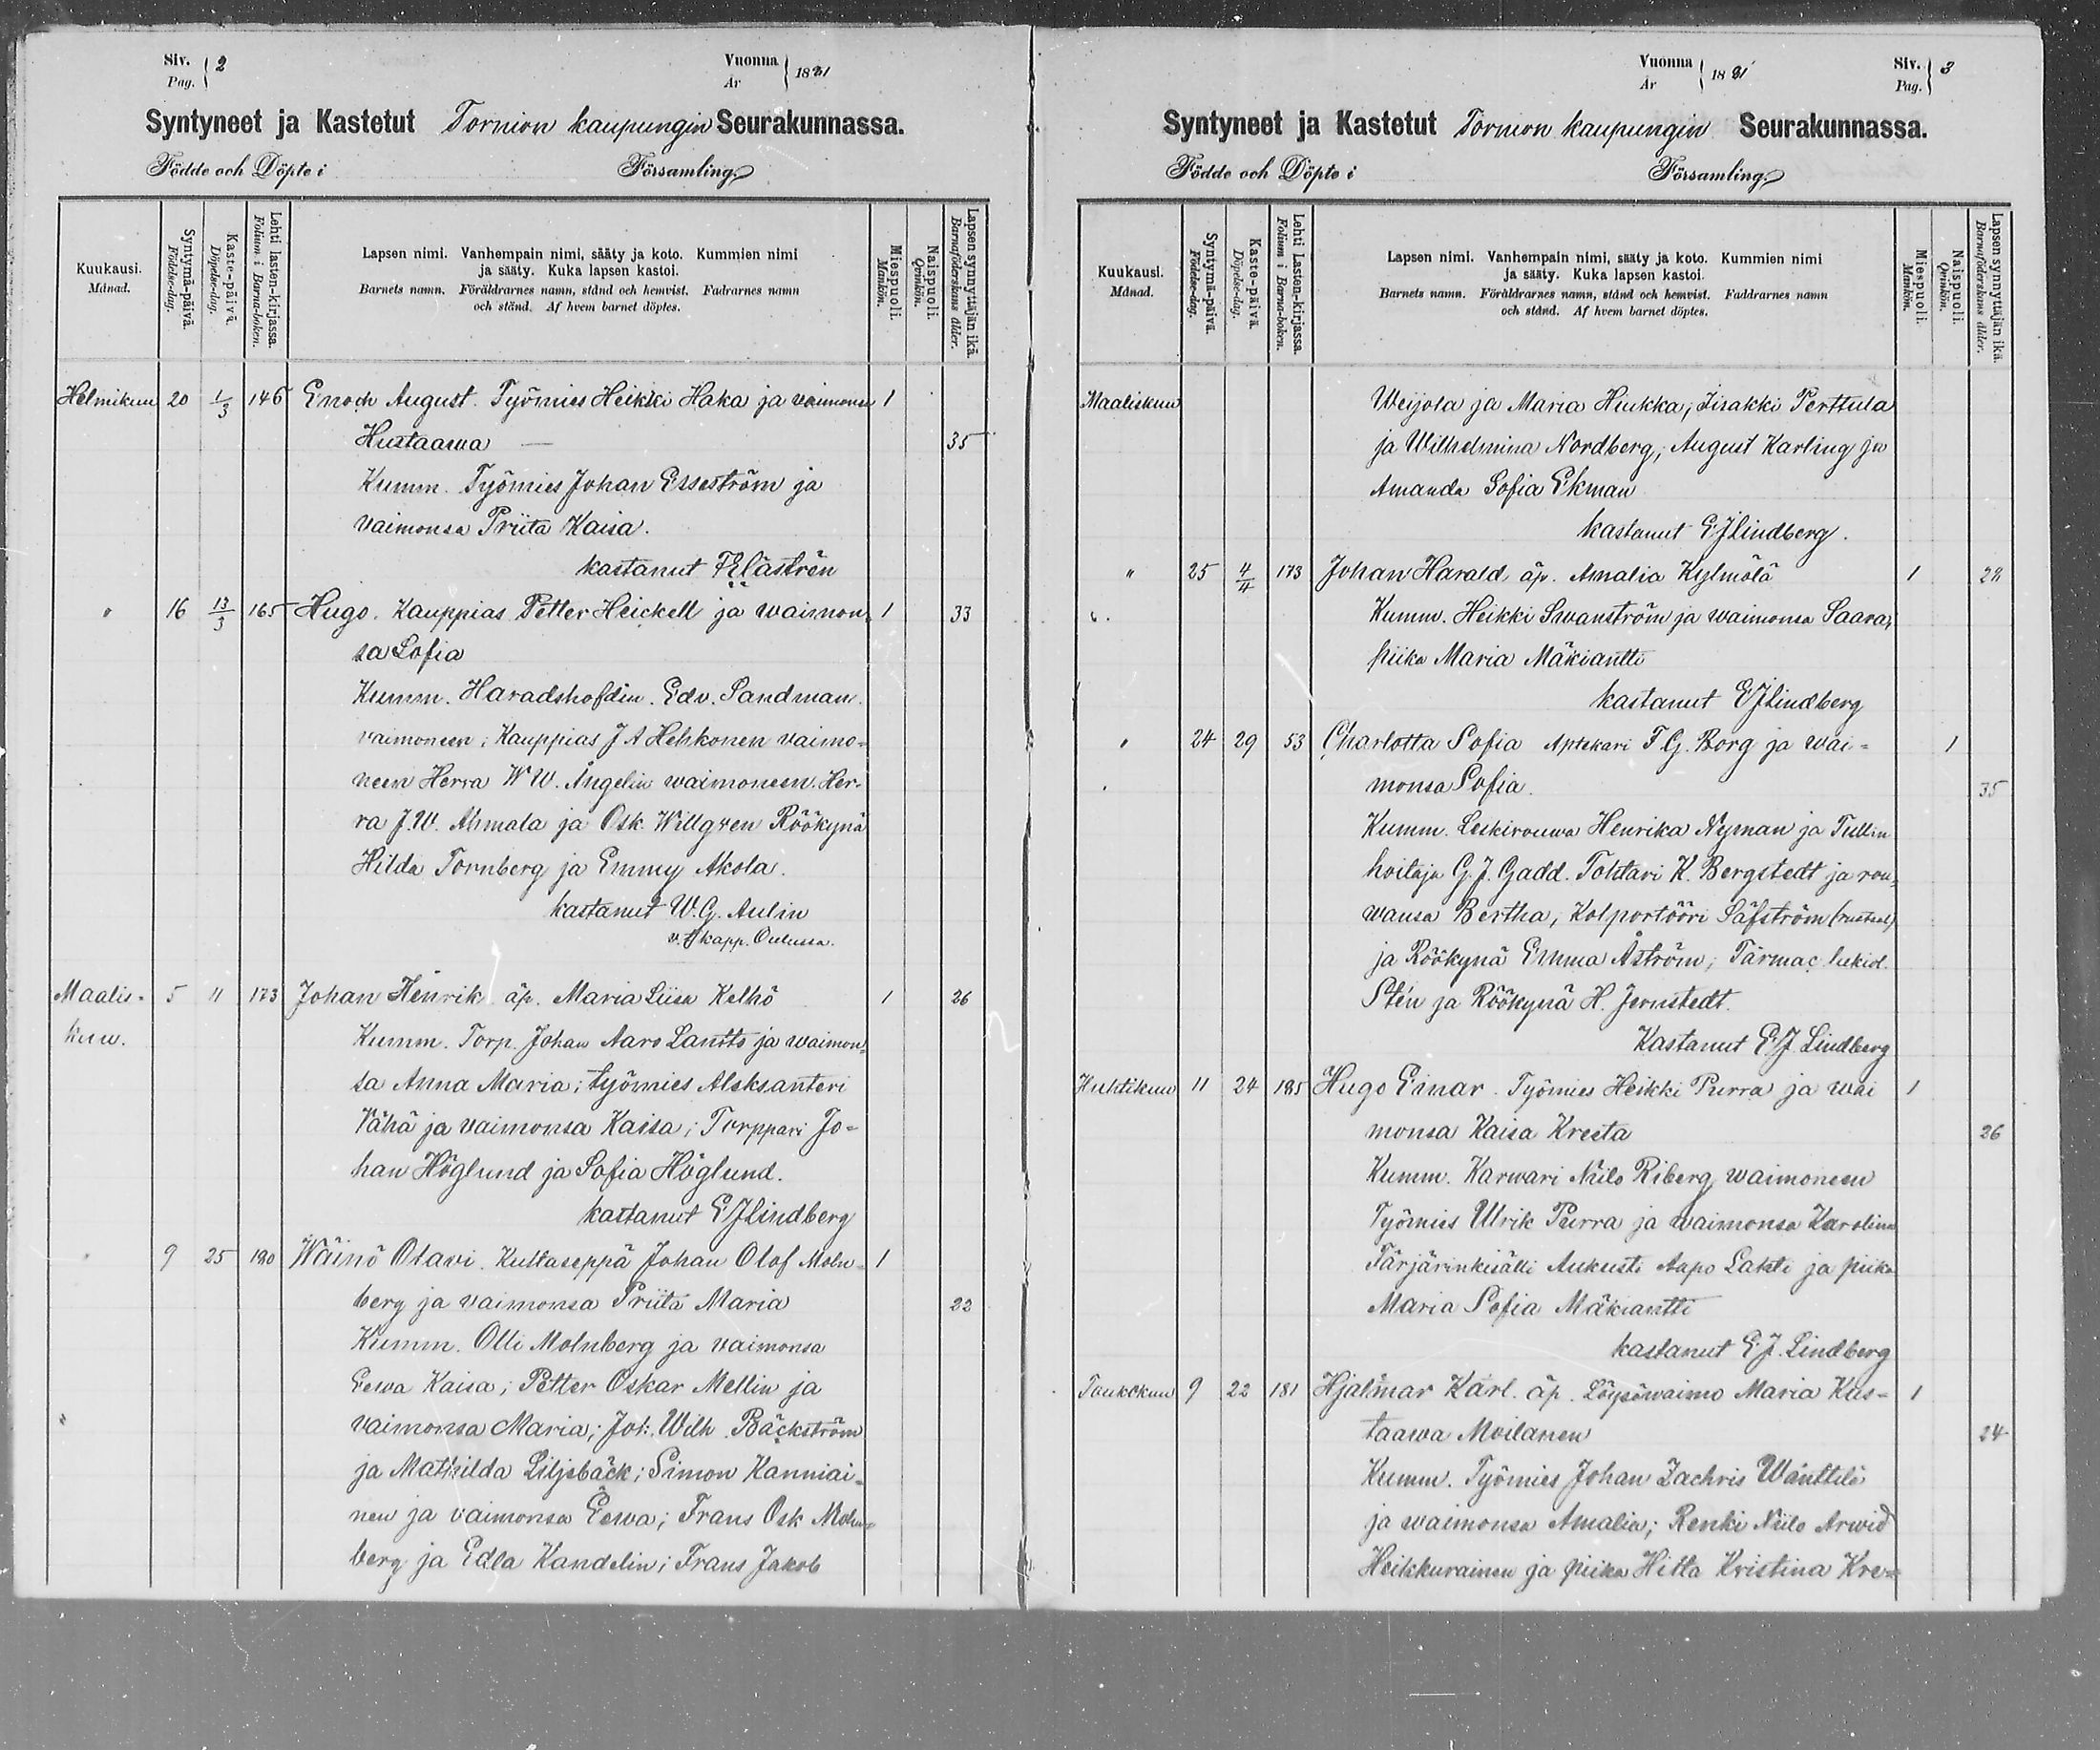 Siv. 2
Pag.
Vuonna 1881
År
Syntyneet ja Kastetut Tornion kaupungin Seurakunnassa.
Födde och Döpte i Församling.
Kuukausi.
Månad.
Syntymä-päivä.
Födelse-dag.
Kaste-päivä.
Döpelse-dag.
Lehti lasten-kirjassa.
Folium i Barna-boken.
Lapsen nimi. Vanhempain nimi, sääty ja koto. Kummien nimi
ja sääty. Kuka lapsen kastoi.
Barnets namn. Föräldrarnes namn, stånd och hemvist. Fadrarnes namn
och stånd. Af hvem barnet döptes.
Miespuoli.
Mankön.
Naispuoli.
Qvinkön.
Lapsen synnyttäjän ikä.
Barnaföderskans ålder.
Helmikuu 20 1/3 146 Enoch August. Työmies Heikki Haka ja vaimonsa 1
Hustaawa — 35
Kumm. Työmies Johan Esseström ja
vaimonsa Priita Kaisa.
kastanut
" 16 13/3 165 Hugo. Kauppias Petter Heickell ja waimon- 1 33
sa Sofia
Kumm. Haradshofdin. Edv. Sandman
vaimoneen; Kauppias J A Hehkonen vaimo-
neen Herra W W. Ångelin waimoneen. Her-
ra J. W. Ahmala ja Osk. Willgren Röökynä
Hilda Tornberg ja Emmy Akola.
kastanut W. G. Aulin
v. t kapp. Oulussa.
Maalis- 5 11 173 Johan Henrik äp. Maria Liisa Kelhö 1 26
kuu. Kumm. Torp. Johan Aaro Lantto ja waimon-
sa Anna Maria; työmies Aleksanteri
Vähä ja vaimonsa Kaisa; Torppari Jo-
han Höglund ja Sofia Höglund.
kastanut E J Lindberg
" 9 25 190 Wäinö Olavi. Kultaseppä Johan Olof Moln- 1
berg ja vaimonsa Priita Maria 22
Kumm. Olli Molnberg ja vaimonsa
Eewa Kaisa; Petter Oskar Mellin ja
vaimonsa Maria; Joh. Wilh. Bäckström
ja Mathilda Liljebäck; Simon Kanniai-
nen ja vaimonsa Eewa; Frans Osk Moln-
berg ja Edla Kandelin; Frans Jakob
Vuonna 1881
År
Siv. 3
Pag.
Syntyneet ja Kastetut Tornion kaupungin Seurakunnassa.
Födde och Döpte i Församling.
Kuukausi.
Månad.
Syntymä-päivä.
Födelse-dag.
Kaste-päivä.
Döpelse-dag.
Lehti Lasten-kirjassa.
Folium i Barna-boken.
Lapsen nimi. Vanhempain nimi, sääty ja koto. Kummien nimi
ja sääty. Kuka lapsen kastoi.
Barnets namn. Föräldrarnes namn, stånd och hemvist. Faddrarnes namn
och stånd. Af hvem barnet döptes.
Miespuoli.
Mankön.
Naispuoli.
Qvinkön.
Lapsen synnyttäjän ikä.
Barnaföderskans ålder.
Maaliskuu Weijola ja Maria Hiukka; Iisakki Perttula
ja Wilhelmina Nordberg; August Karling ja
Amanda Sofia Ekman
kastanut E J Lindberg.
" 25 4/4 173 Johan Harald äp. Amalia Kylmälä 1
Kumm. Heikki Swanström ja waimonsa Saara;
piika Maria Mäkiantti
kastanut E J Lindberg
" 24 29 53 Charlotta Sofia Aptekari F. G. Borg ja wai- 1
monsa Sofia. 35
Kumm. Leskirouwa Henrika Nyman ja Tullin
hoitaja G. J. Gadd. Tohtari K. Bergstedt ja rou-
wansa Bertha, Kolportööri Säfström
ja Röökynä Emma Åström;
Stén ja Röökynä H. Jernstedt.
Kastanut E J. Lindberg
Huhtikuu 11 24 185 Hugo Einar. Työmies Heikki Purra ja wai 1
monsa Kaisa Kreeta 26
Kumm. Karwari Niilo Riberg waimoneen
Työmies Ulrik Purra ja waimonsa Karolina
Färjärinkisälli Aukusti Aapo Lahti ja piika
Maria Sofia Mäkiantti
kastanut E. J. Lindberg
Toukokuu 9 22 181 Hjalmar Karl. äp. Löysäwaimo Maria Kus- 1
taawa Moilanen 24
Kumm. Työmies Johan Zachris Wänttilä
ja waimonsa Amalia; Renki Niilo Arwid
Heikkurainen ja piika Hilla Kristina Kre-